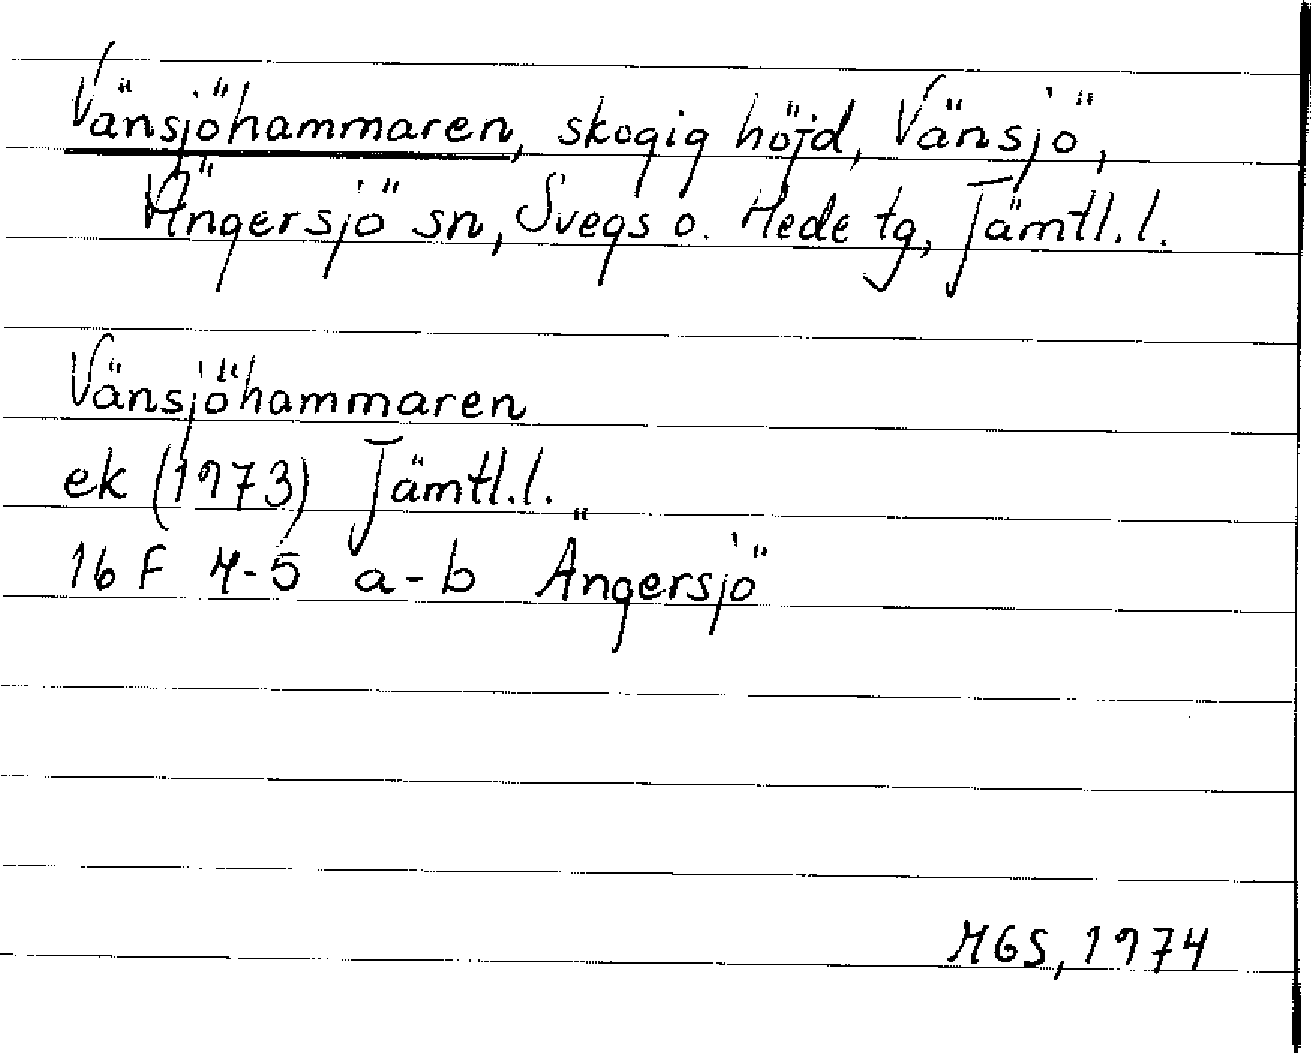 Vänsjöhammaren, skogig höjd, Vänsjö,
Ängersjö sn, Svegs o. Hede tg, Jämtl.l.
Vänsjöhammaren
ek (1973) Jämtl.l.
16 F 4-5 a-b Ängersjö
MGS, 1974